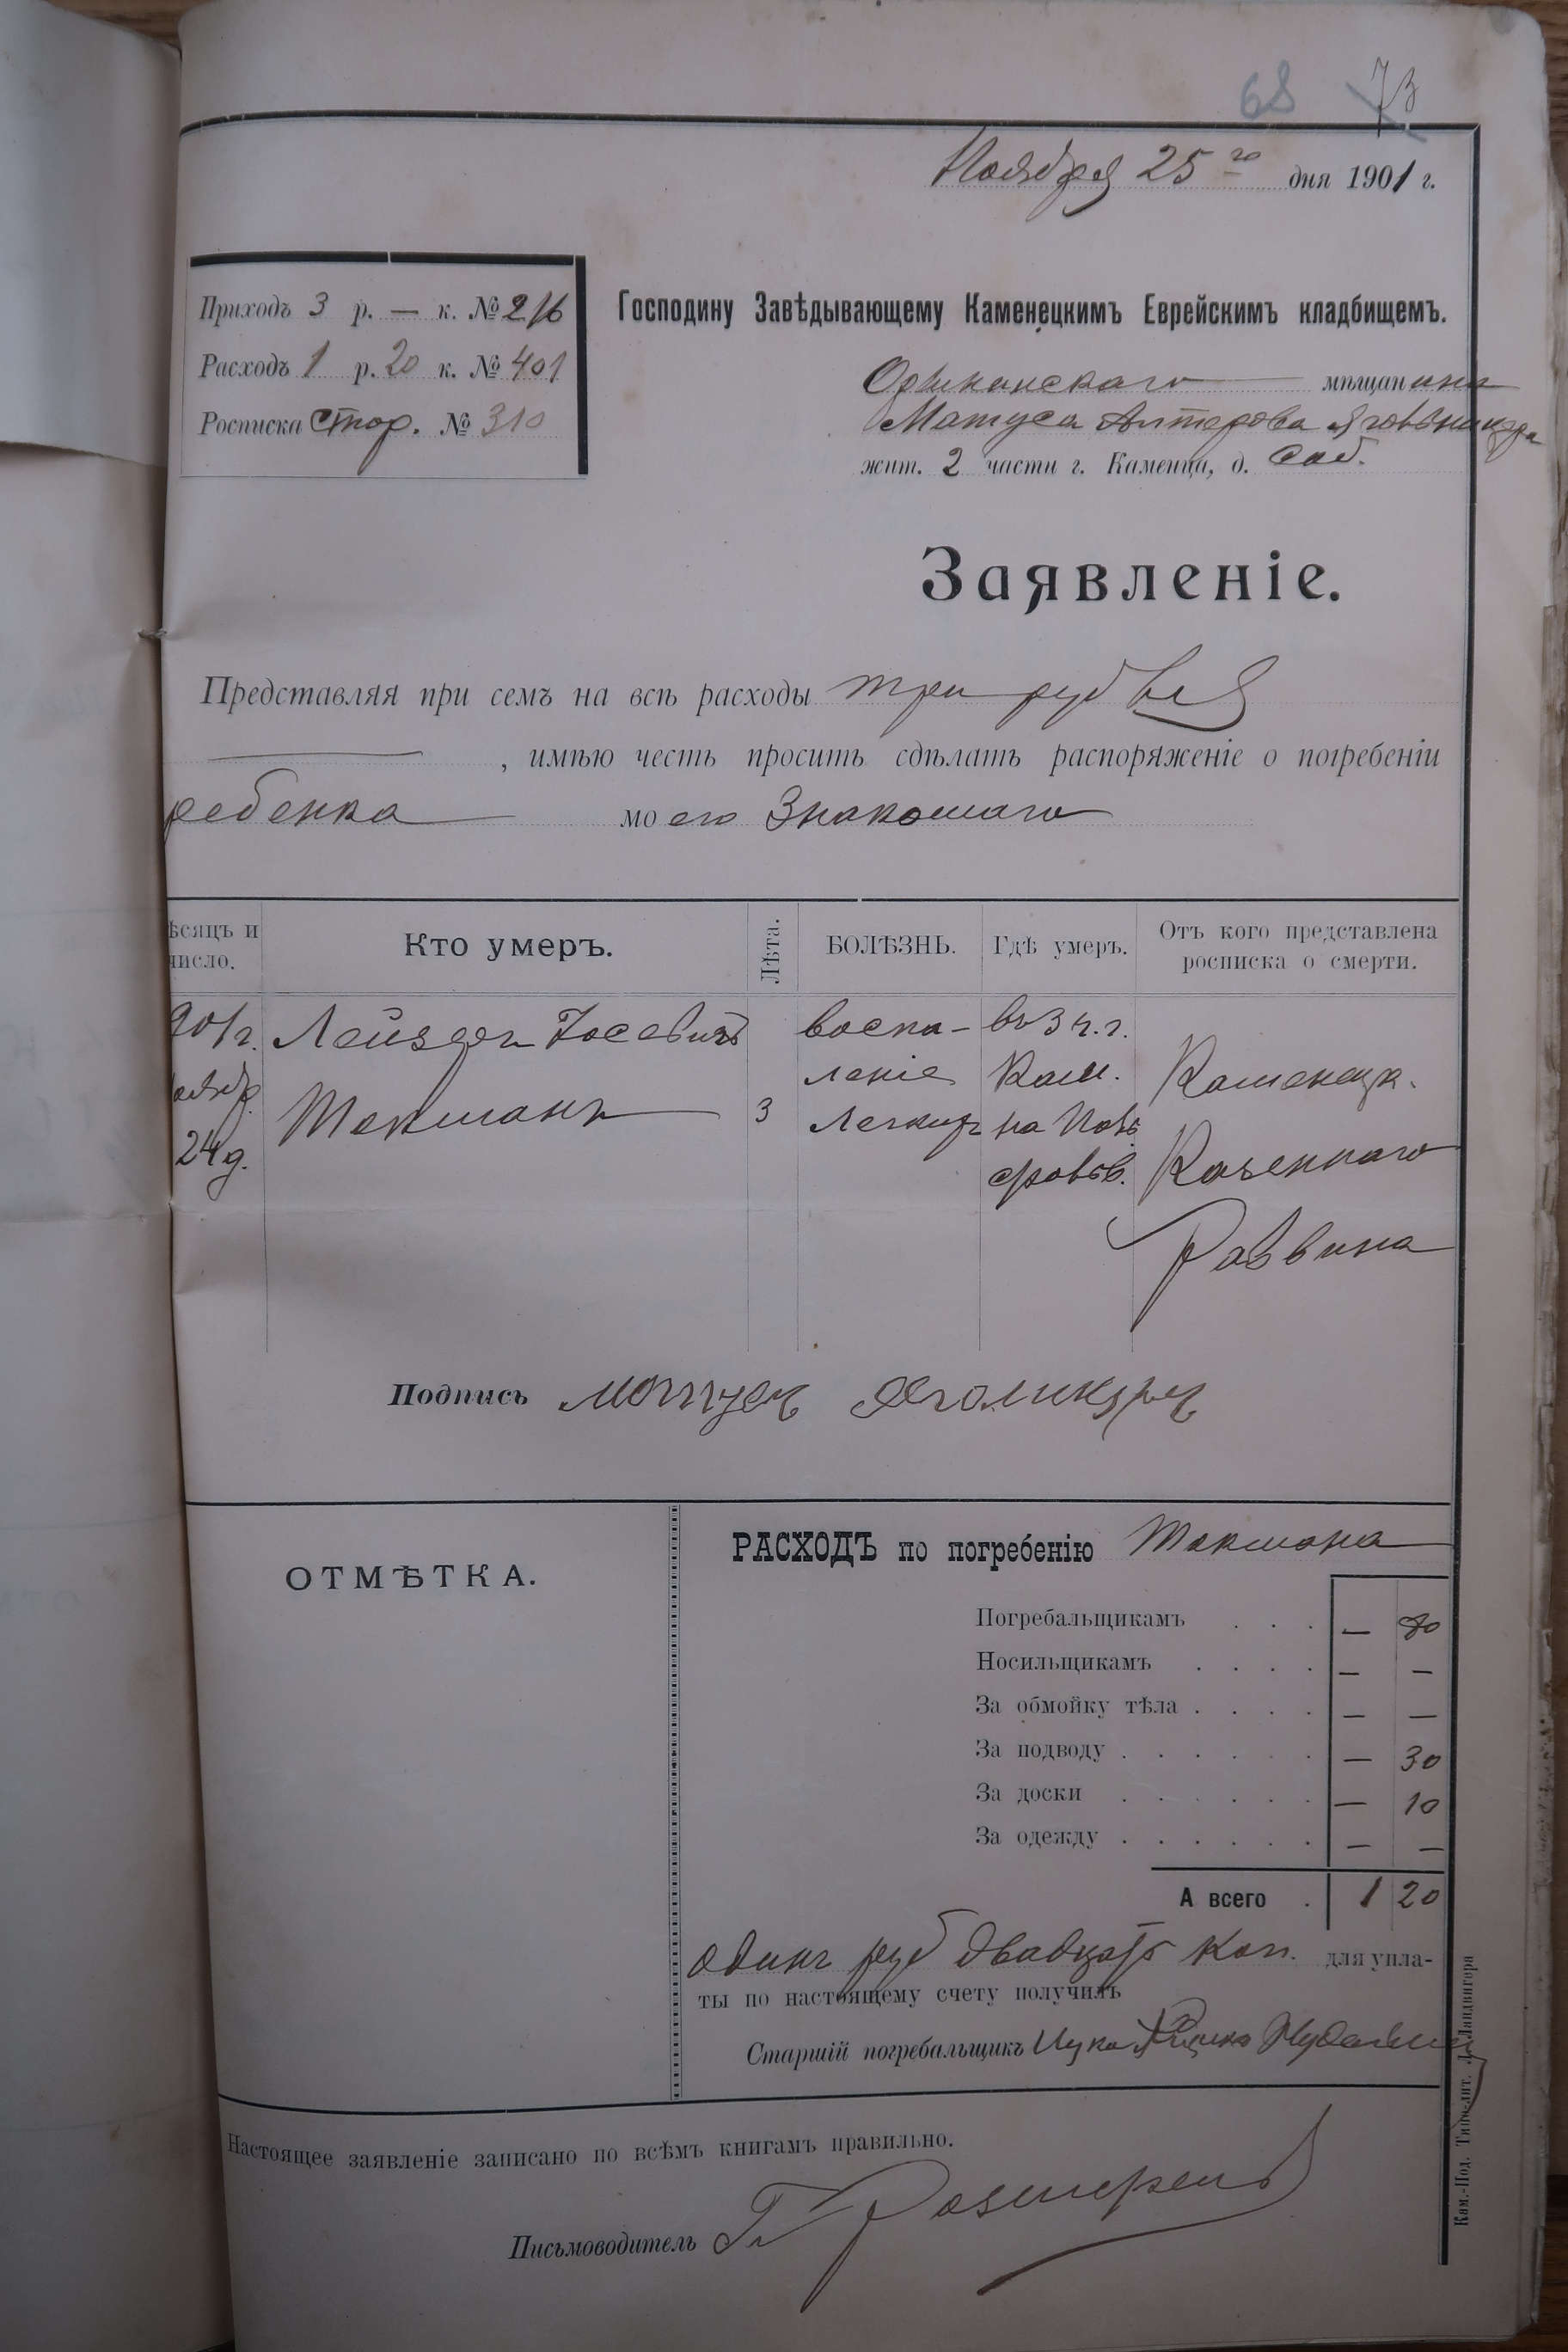 68 73
Ноября 25го дня 1901 г.
Приходъ 3 р. — к. № 216
Расходъ 1 р. 20 к. № 401
Росписка стор. № 310
Господину Завѣдывающему Каменецкимъ Еврейскимъ кладбищемъ.
мѣщанина
Матуса Алтерова
жит. 2 части г. Каменца, д. соб.
Заявленіе.
Представляя при семъ на всѣ расходы три рубля
—, имѣю честь просить сдѣлать распоряженіе о погребеніи
ребенка моего Знакомаго
ѣсяцъ и число.
Кто умеръ.
Лѣта.
БОЛѢЗНЬ.
Гдѣ умеръ.
Отъ кого представлена росписка о смерти.
901г. Лейзеръ Іосевичъ воспа- въ 3 ч. г.
оябр. Текманъ 3 леніе Кам. Каменецк.
24 д. Легкихъ на Казеннаго
Раввина
Подпись
ОТМѢТКА.
РАСХОДЪ по погребенію Текмана
Погребальщикамъ . . . — 80
Носильщикамъ . . . . — —
За обмойку тѣла . . . . — —
За подводу . . . . . . — 30
За доски . . . . . . — 10
За одежду . . . . . . — —
А всего . 1 20
одинъ руб двадцать коп. для упла-
ты по настоящему счету получилъ
Старшій погребальщикъ
Настоящее заявленіе записано по всѣмъ книгамъ правильно.
Письмоводитель
Кам.-Под. Типо-лит. Д. Ландвигера